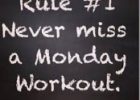 Rule #1
Never miss
a Monday
Workout.